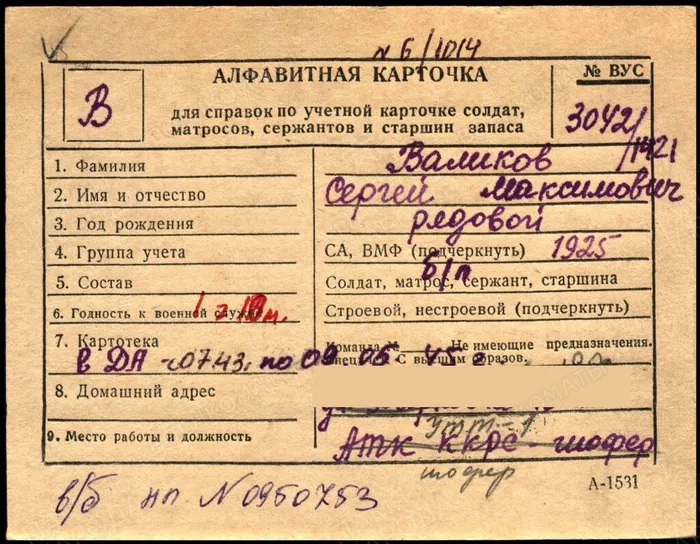 N 6/1014
АЛФАВИТНАЯ КАРТОЧКА
№ ВУС
В
для справок по учетной карточке солдат,
матросов, сержантов и старшин запаса
3042/1421
1. Фамилия
Валиков
2. Имя и отчество
Сергей Максимович
3. Год рождения
рядовой
4. Группа учета
СА, ВМФ (подчеркнуть) 1925
5. Состав
б/п
Солдат, матрос, сержант, старшина
6. Годность к военной службе
Строевой, нестроевой (подчеркнуть)
7. Картотека
Команда № Не имеющие предназначения.
С высшим образов.
в ДА - 0743 по 09 05 45 г.
8. Домашний адрес
9. Место работы и должность
АТК ККРС - шофер
шофер
А-1531
в/б нп N 0950753